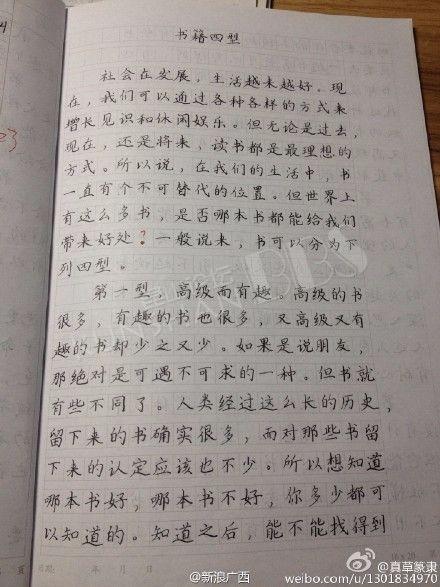 书籍四型
社会在发展，生活越来越好。现
在，我们可以通过各种各样的方式来
增长见识和休闲娱乐。但无论是过去，
现在，还是将来，读书都是最理想的
方式。所以说，在我们的生活中，书
一直有个不可替代的位置。但世界上
有这么多书，是否哪本书都能给我们
带来好处？一般说来，书可以分为下
列四型。
第一型，高级而有趣。高级的书
很多，有趣的书也很多，又高级又有
趣的书却少之又少。如果是说朋友，
那绝对是可遇不可求的一种。但书就
有些不同了。人类经过这么长的历史，
留下来的书确实很多，而对那些书留
下来的认定应该也不少。所以想知道
哪本书好，哪本书不好，你多少都可
以知道的。知道之后，能不能找得到
页
年 月 日
16×20
页
@新浪广西
@真草篆隶
weibo.com/u/1301834970